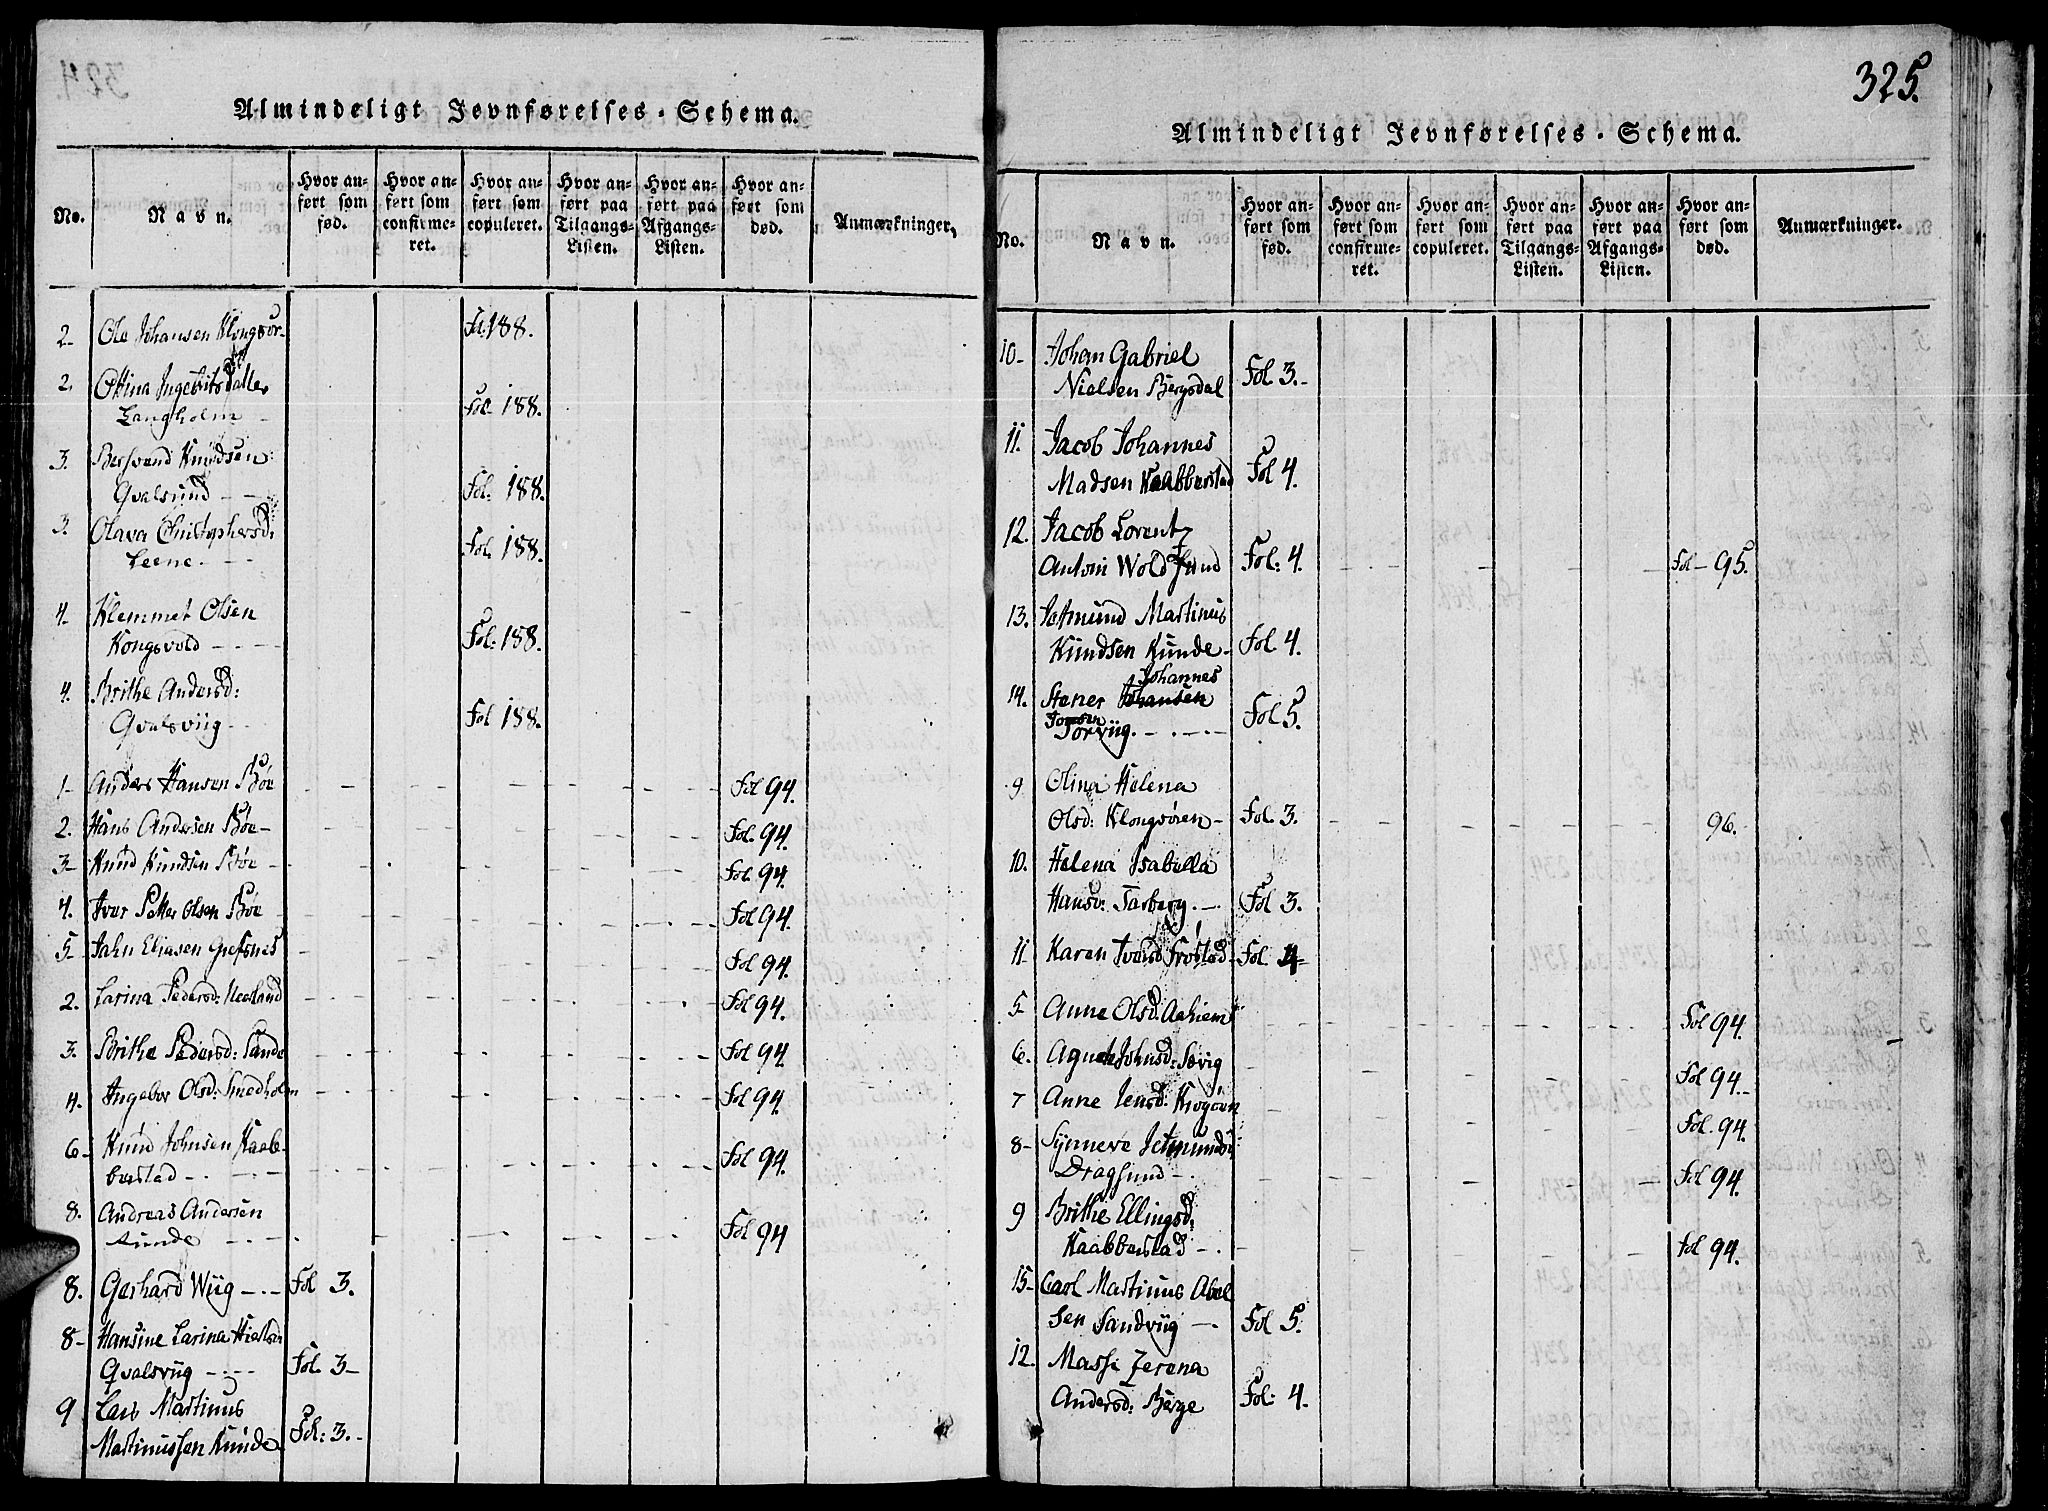 Almindeligt Jevnførelses-Schema.
No. Navn. Hvor anført som fød. Hvor anført som confirmeret. Hvor anført som copuleret. Hvor anført paa Tilgangs-Listen. Hvor anført paa Afgangs-Listen. Hvor anført som død. Anmærkninger.
2- Ole Johansen Klongsör- Fol 188.
2. Oltina Ingebrits
Langholm Fol 188.
3. Bersvend Knudsen
Qvalsund Fol: 188.
3. Olava Christophersd:
Leene. Fol. 188.
4- Klemmet Olsen
Kongsvold Fol: 188.
4. Brithe Andersd:
Qvalsviig Fol 188.
1- Anders Hansen Böe Fol 94.
2. Hans Andersen Böe- Fol. 94.
3- Knud Knudsen Böe Fol. 94.
4. Iver Petter Olsen Böe Fol 94.
5- Jahn Eliasen Fol 94.
2. Larina Pedersd: Nerland Fol 94.
3. Brithe Pedersd: Sande Fol 94.
4. Ingebor Olsd: Smedholm Fol 94.
6- Knud Johnsen Kaab-
berstad Fol 94.
8. Andreas Andersen
Kunde Fol 94
8. Gerhard Wiig Fol 3.
8- Hansine Larina
Qvalsviig Fol. 3-
9 Lars Martinus
Martinussen Kunde Fol: 3.-
325.
Almindeligt Jevnførelses-Schema.
No. Navn. Hvor anført som fød. Hvor anført som confirmeret. Hvor anført som copuleret. Hvor anført paa Tilgangs-Listen. Hvor anført paa Afgangs-Listen. Hvor anført som død. Anmærkninger.
10- Johan Gabriel
Nielsen Bergsdal Fol 3.-
11. Jacob Johannes
Madsen Kaabberstad Fol 4.
12. Jacob Lorentz
Antoni Wold Fol: 4. Fol- 95.
13. Jetmund Martinus
Knudsen Kunde Fol 4.
Johannes
14. Stener Johansen
Torviig. Fol 5.
9 Olina Helena
Olsd: Klongsören- Fol. 3. 96.
10. Helena Isabella
Hansd: Tarberg. Fol 3.
11 Karen Iversd Frostad Fol. 4-
5- Anne Olsd: Aahiem Fol 94.
6. Agnete Johnsd: Sævig Fol 94.-
7 Anne Jensd: Fol. 94.
8- Synneve Jetmundsd
Dragsund Fol 94.
9 Brithe Ellingsd:
Kaabberstad Fol 94.
15- Carl Martinus Abel
sen Sandviig Fol 5.
12. Massi Zerena
Andersd: Berge Fol: 4.